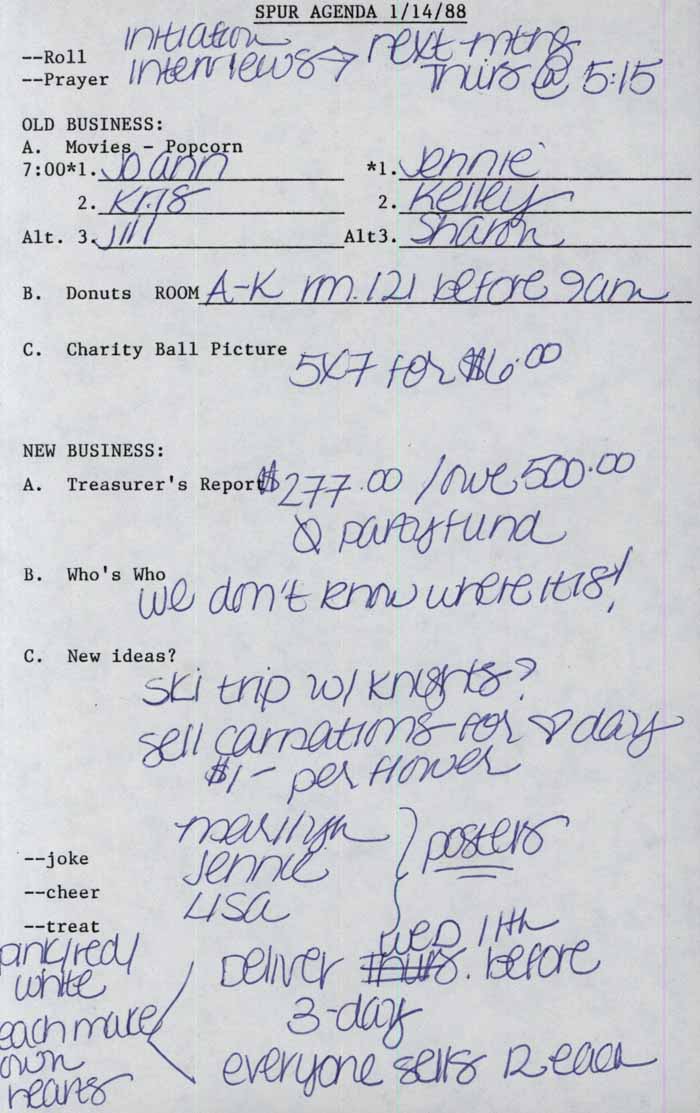 SPUR AGENDA 1/14/88
initiation
interviews → next mtng
Thurs @ 5:15
--Roll
--Prayer
OLD BUSINESS:
A. Movies - Popcorn
7:00*1. Jo ann *1. Jennie
2. Kris 2. Kelley
Alt. 3. Jill Alt3. Sharon
B. Donuts ROOM A-K rm. 121 before 9am
C. Charity Ball Picture 5X7 for $6.00
NEW BUSINESS:
A. Treasurer's Report $277.00 / owe 500.00
Ø party fund
B. Who's Who
we don't know where it is!
C. New ideas?
ski trip w/ knights?
sell carnations for ♡ day
$1- per flower
marilyn
--joke Jennie posters
--cheer Lisa
--treat
WED 11th
pink/red/ Deliver Thurs. before
white
3-day
each make
own everyone sells 12 each
hearts